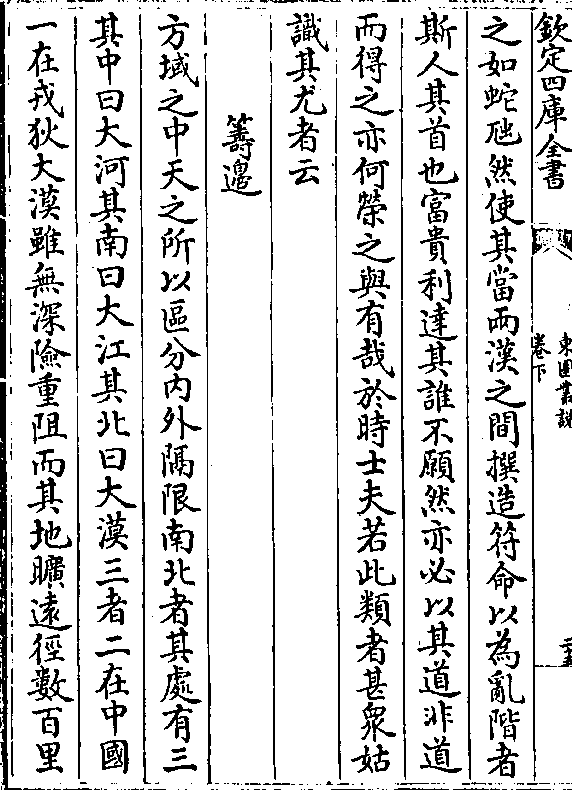 欽定四庫全書
東園叢説
卷下
二十五
之如蛇虺然使其當兩漢之間撰造符命以為亂階者
斯人其首也富貴利達其誰不願然亦必以其道非道
而得之亦何榮之與有哉於時士夫若此類者甚衆姑
識其尤者云
籌邊
方域之中天之所以區分内外隔限南北者其處有三
其中曰大河其南曰大江其北曰大漠三者二在中國
一在戎狄大漠雖無深險重阻而其地曠遠徑數百里